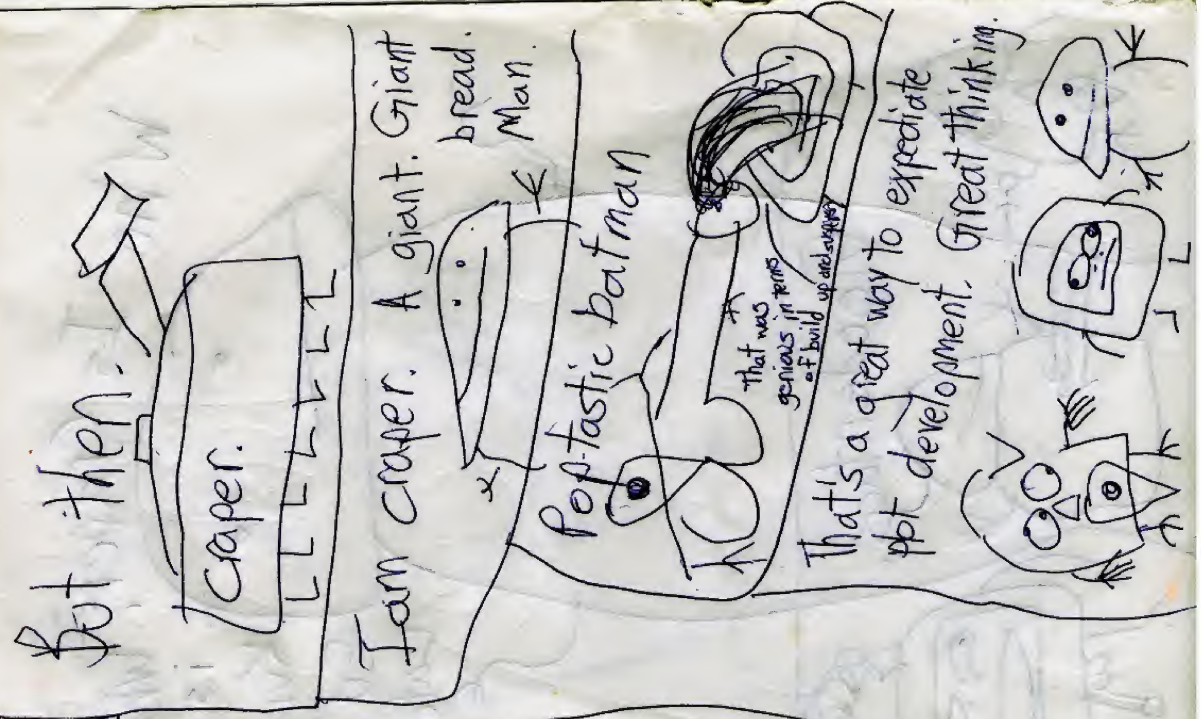 But then.
Craper.
I am craper. A giant. Giant
bread.
Man.
Pop-tastic batman
That was
genious in terms
of build up and
That's a great way to expediate
ppt development. Great thinking.